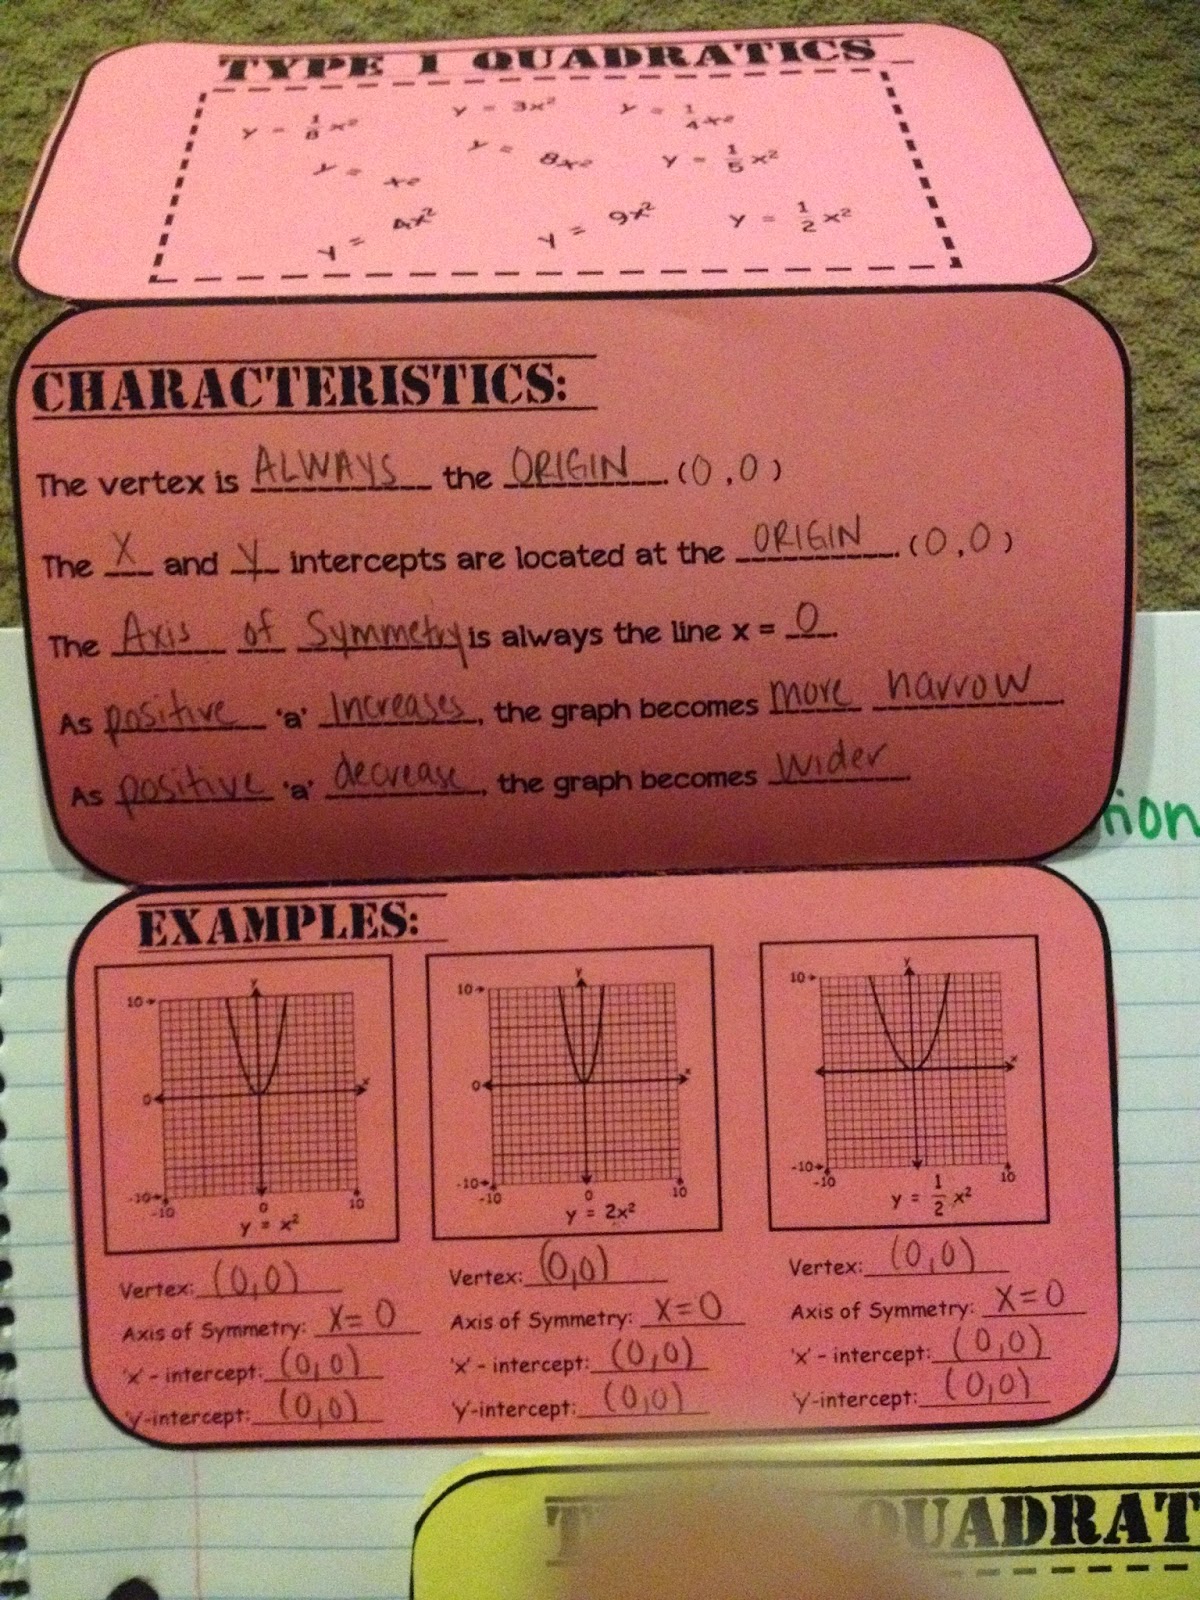 TYPE 1 QUADRATICS
y = 1/8 x² y = 3x² y = 1/4 x²
y = x² y = 8x² y = 1/5 x²
y = 4x² y = 9x² y = 1/2 x²
CHARACTERISTICS:
The vertex is ALWAYS the ORIGIN. (0,0)
The X and Y intercepts are located at the ORIGIN. (0,0)
The Axis of Symmetry is always the line x = 0.
As positive 'a' Increases, the graph becomes more narrow.
As positive 'a' decrease, the graph becomes wider
EXAMPLES:
y y y
10 10 10
0 x 0 x x
-10 -10 -10
-10 0 10 -10 0 10 -10 10
y = x² y = 2x² y = 1/2 x²
Vertex: (0,0) Vertex: (0,0) Vertex: (0,0)
Axis of Symmetry: X=0 Axis of Symmetry: X=0 Axis of Symmetry: X=0
'x' - intercept: (0,0) 'x' - intercept: (0,0) 'x' - intercept: (0,0)
'y'-intercept: (0,0) 'y'-intercept: (0,0) 'y'-intercept: (0,0)